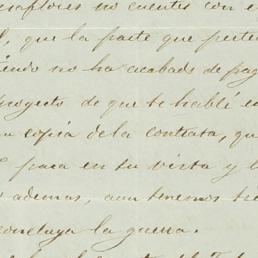 no cuentes con e
que la parte que perte
no ha acabado de pag
proyecto de que te hablé e
copia dela contrata, qu
para en su vista y
ademas, aun tenemos
concluya la guerra.